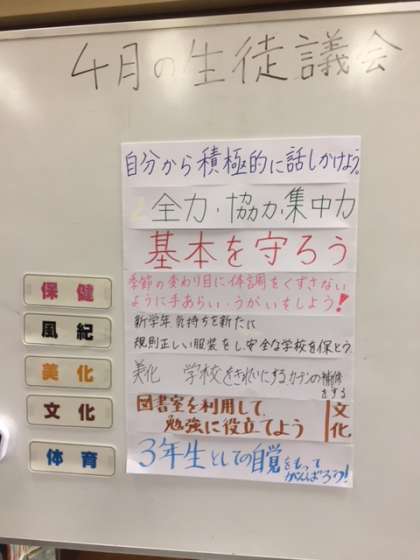 4月の生徒議会
自分から積極的に話しかけよう。
全力・協力・集中力
基本を守ろう
保健
季節の変わり目に体調をくずさない
ように手あらい・うがいをしよう!
風紀
新学年気持ちを新たに
規則正しい服装をし安全な学校を保とう
美化
美化 学校をきれいにするカーテンの補修
をする
文化
図書室を利用して、
勉強に役立てよう
文化
体育
3年生としての自覚をもって
がんばろう!